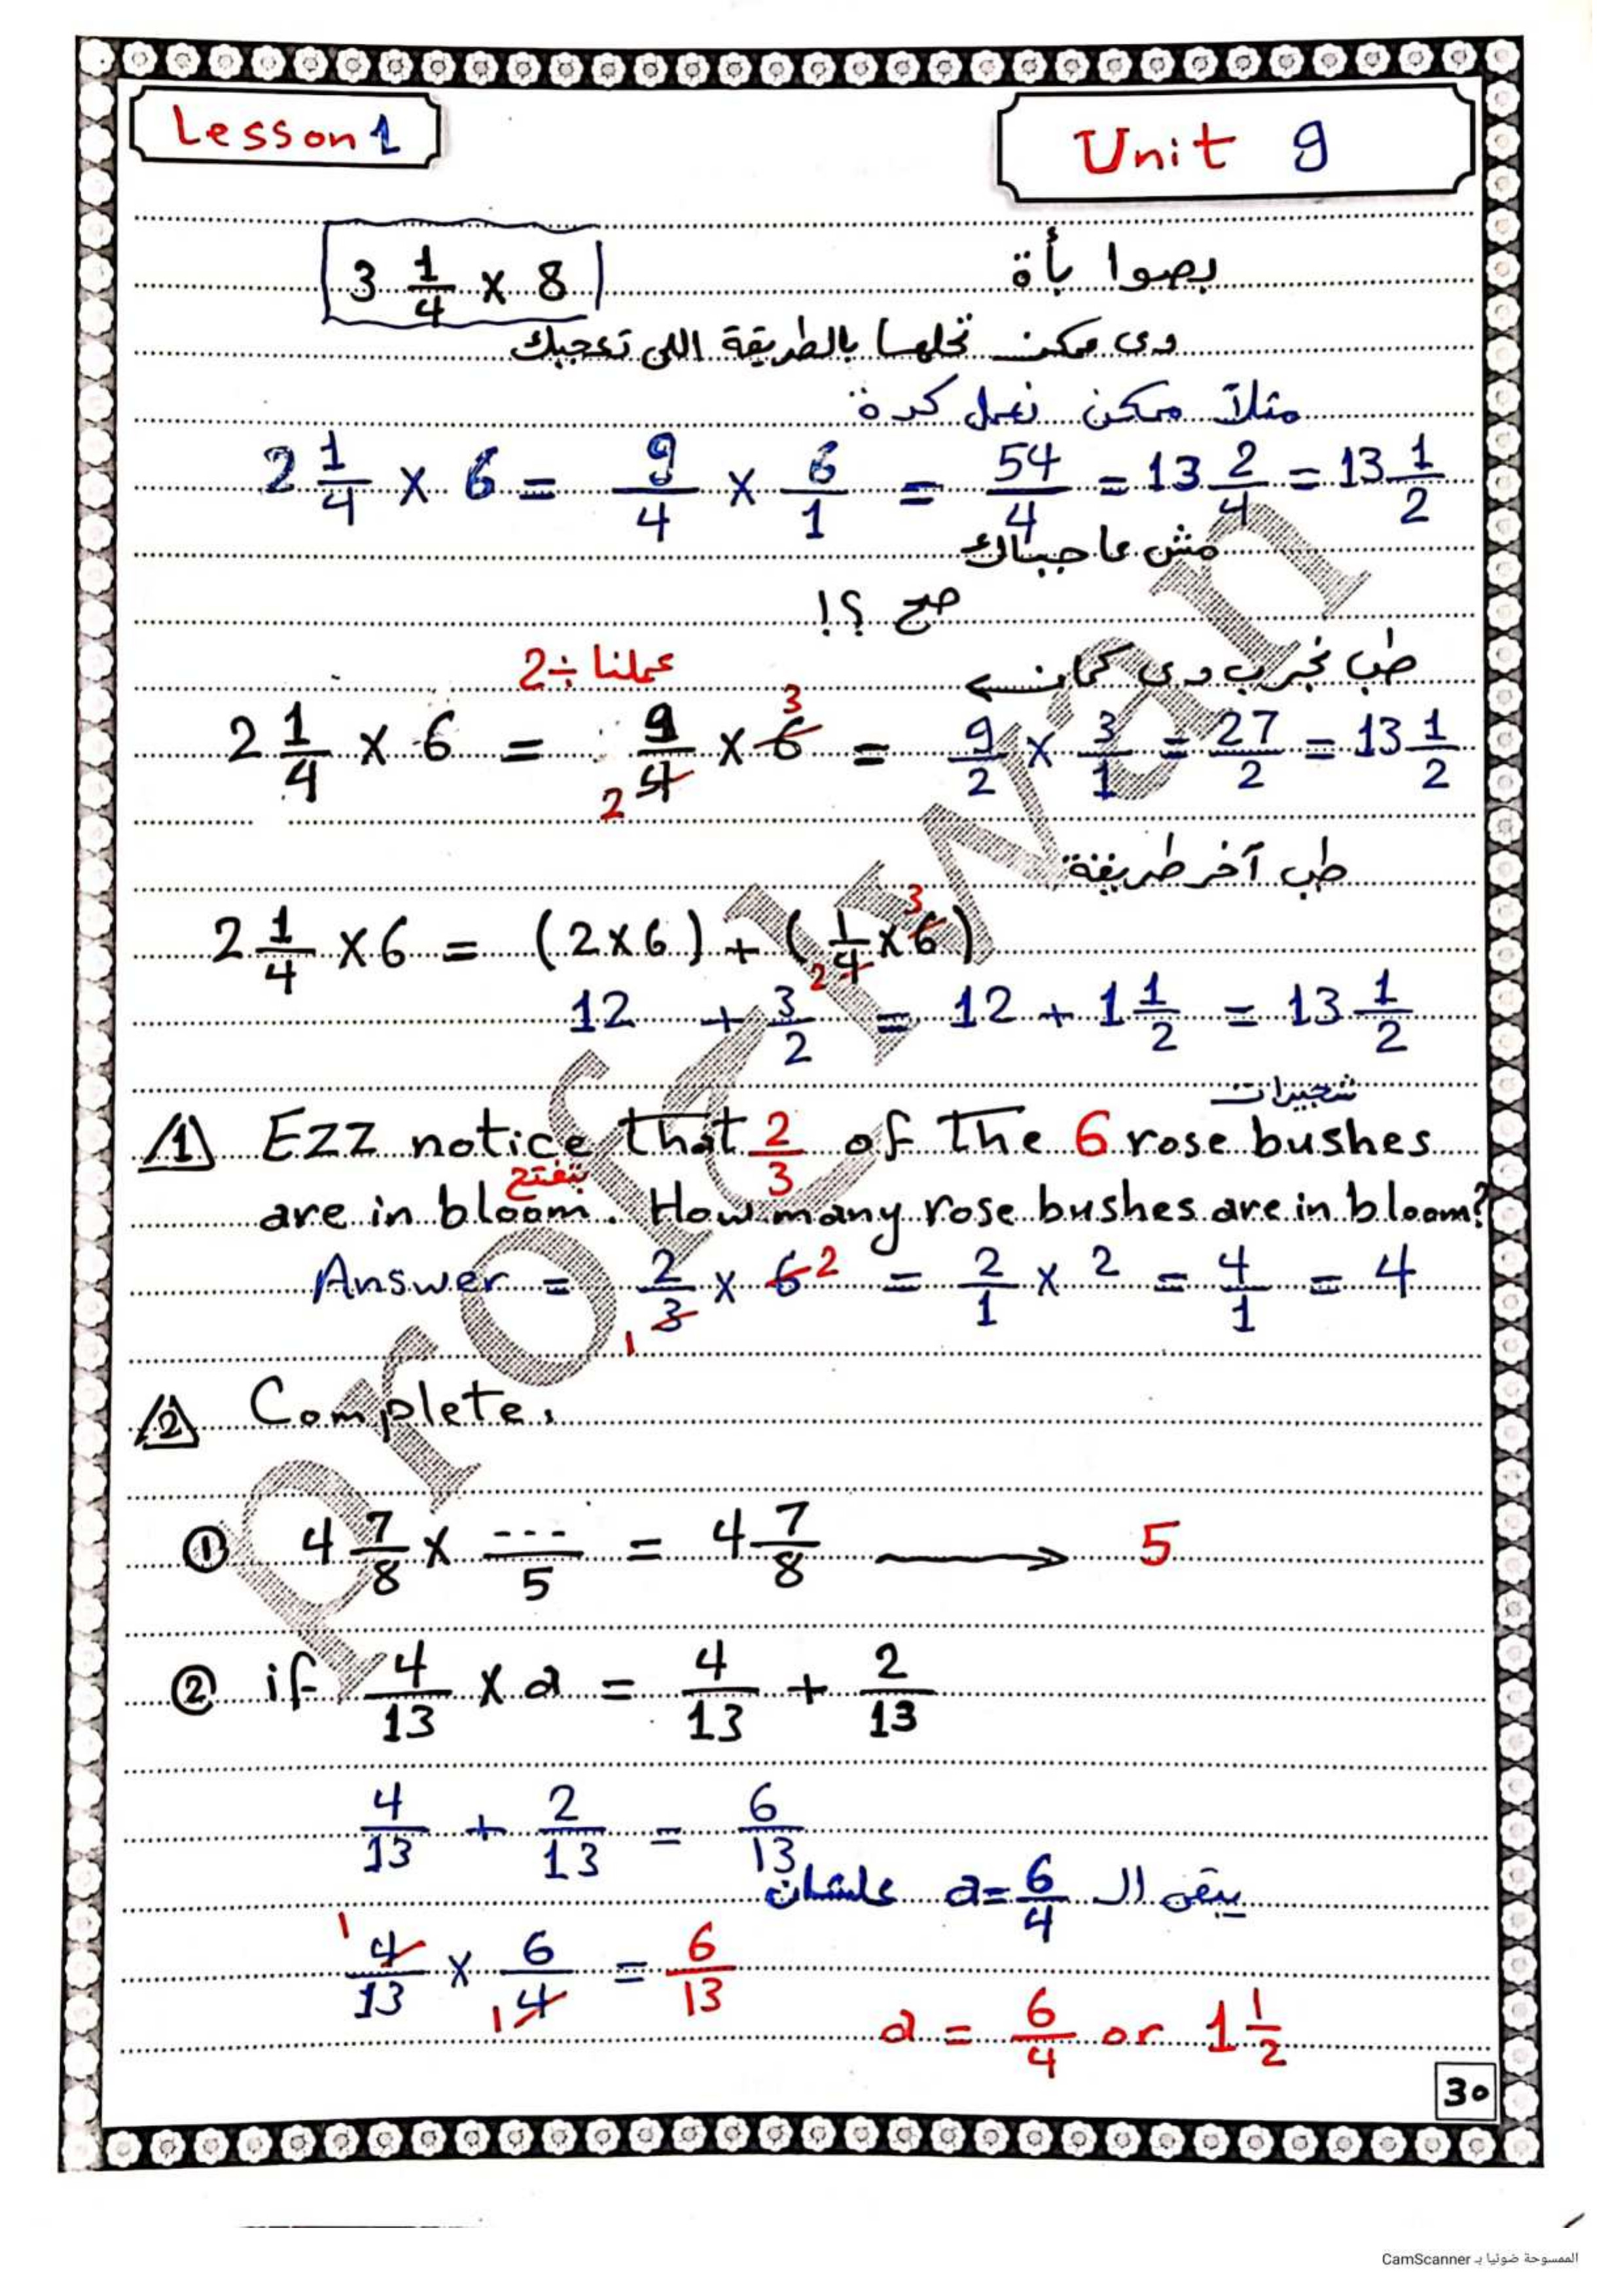 Lesson 1
Unit 9
بصوا بأة 3 1/4 × 8
دى ممكن تحلها بالطريقة اللى تعجبك
مثلاً ممكن نعمل كدة
2 1/4 × 6 = 9/4 × 6/1 = 54/4 = 13 2/4 = 13 1/2
مش عاجباك
صح ؟!
طب نجرب دى كمان ←
عملنا ÷2
2 1/4 × 6 = 9/4 2 × 6 3 = 9/2 × 3/1 = 27/2 = 13 1/2
طب آخر طريقة
2 1/4 × 6 = (2 × 6) + (1/4 2 × 6 3)
12 + 3/2 = 12 + 1 1/2 = 13 1/2
شجيرات
1 Ezz notice that 2/3 of the 6 rose bushes
بتفتح
are in bloom. How many rose bushes are in bloom?
Answer = 2/3 1 × 6 2 = 2/1 × 2 = 4/1 = 4
2 Complete.
① 4 7/8 × ---/5 = 4 7/8 → 5
② if 4/13 × a = 4/13 + 2/13
4/13 + 2/13 = 6/13
يبقى ال a = 6/4 علشان
1 4/13 × 6/4 1 = 6/13
a = 6/4 or 1 1/2
30
Prof/Li Wael
الممسوحة ضوئيا بـ CamScanner